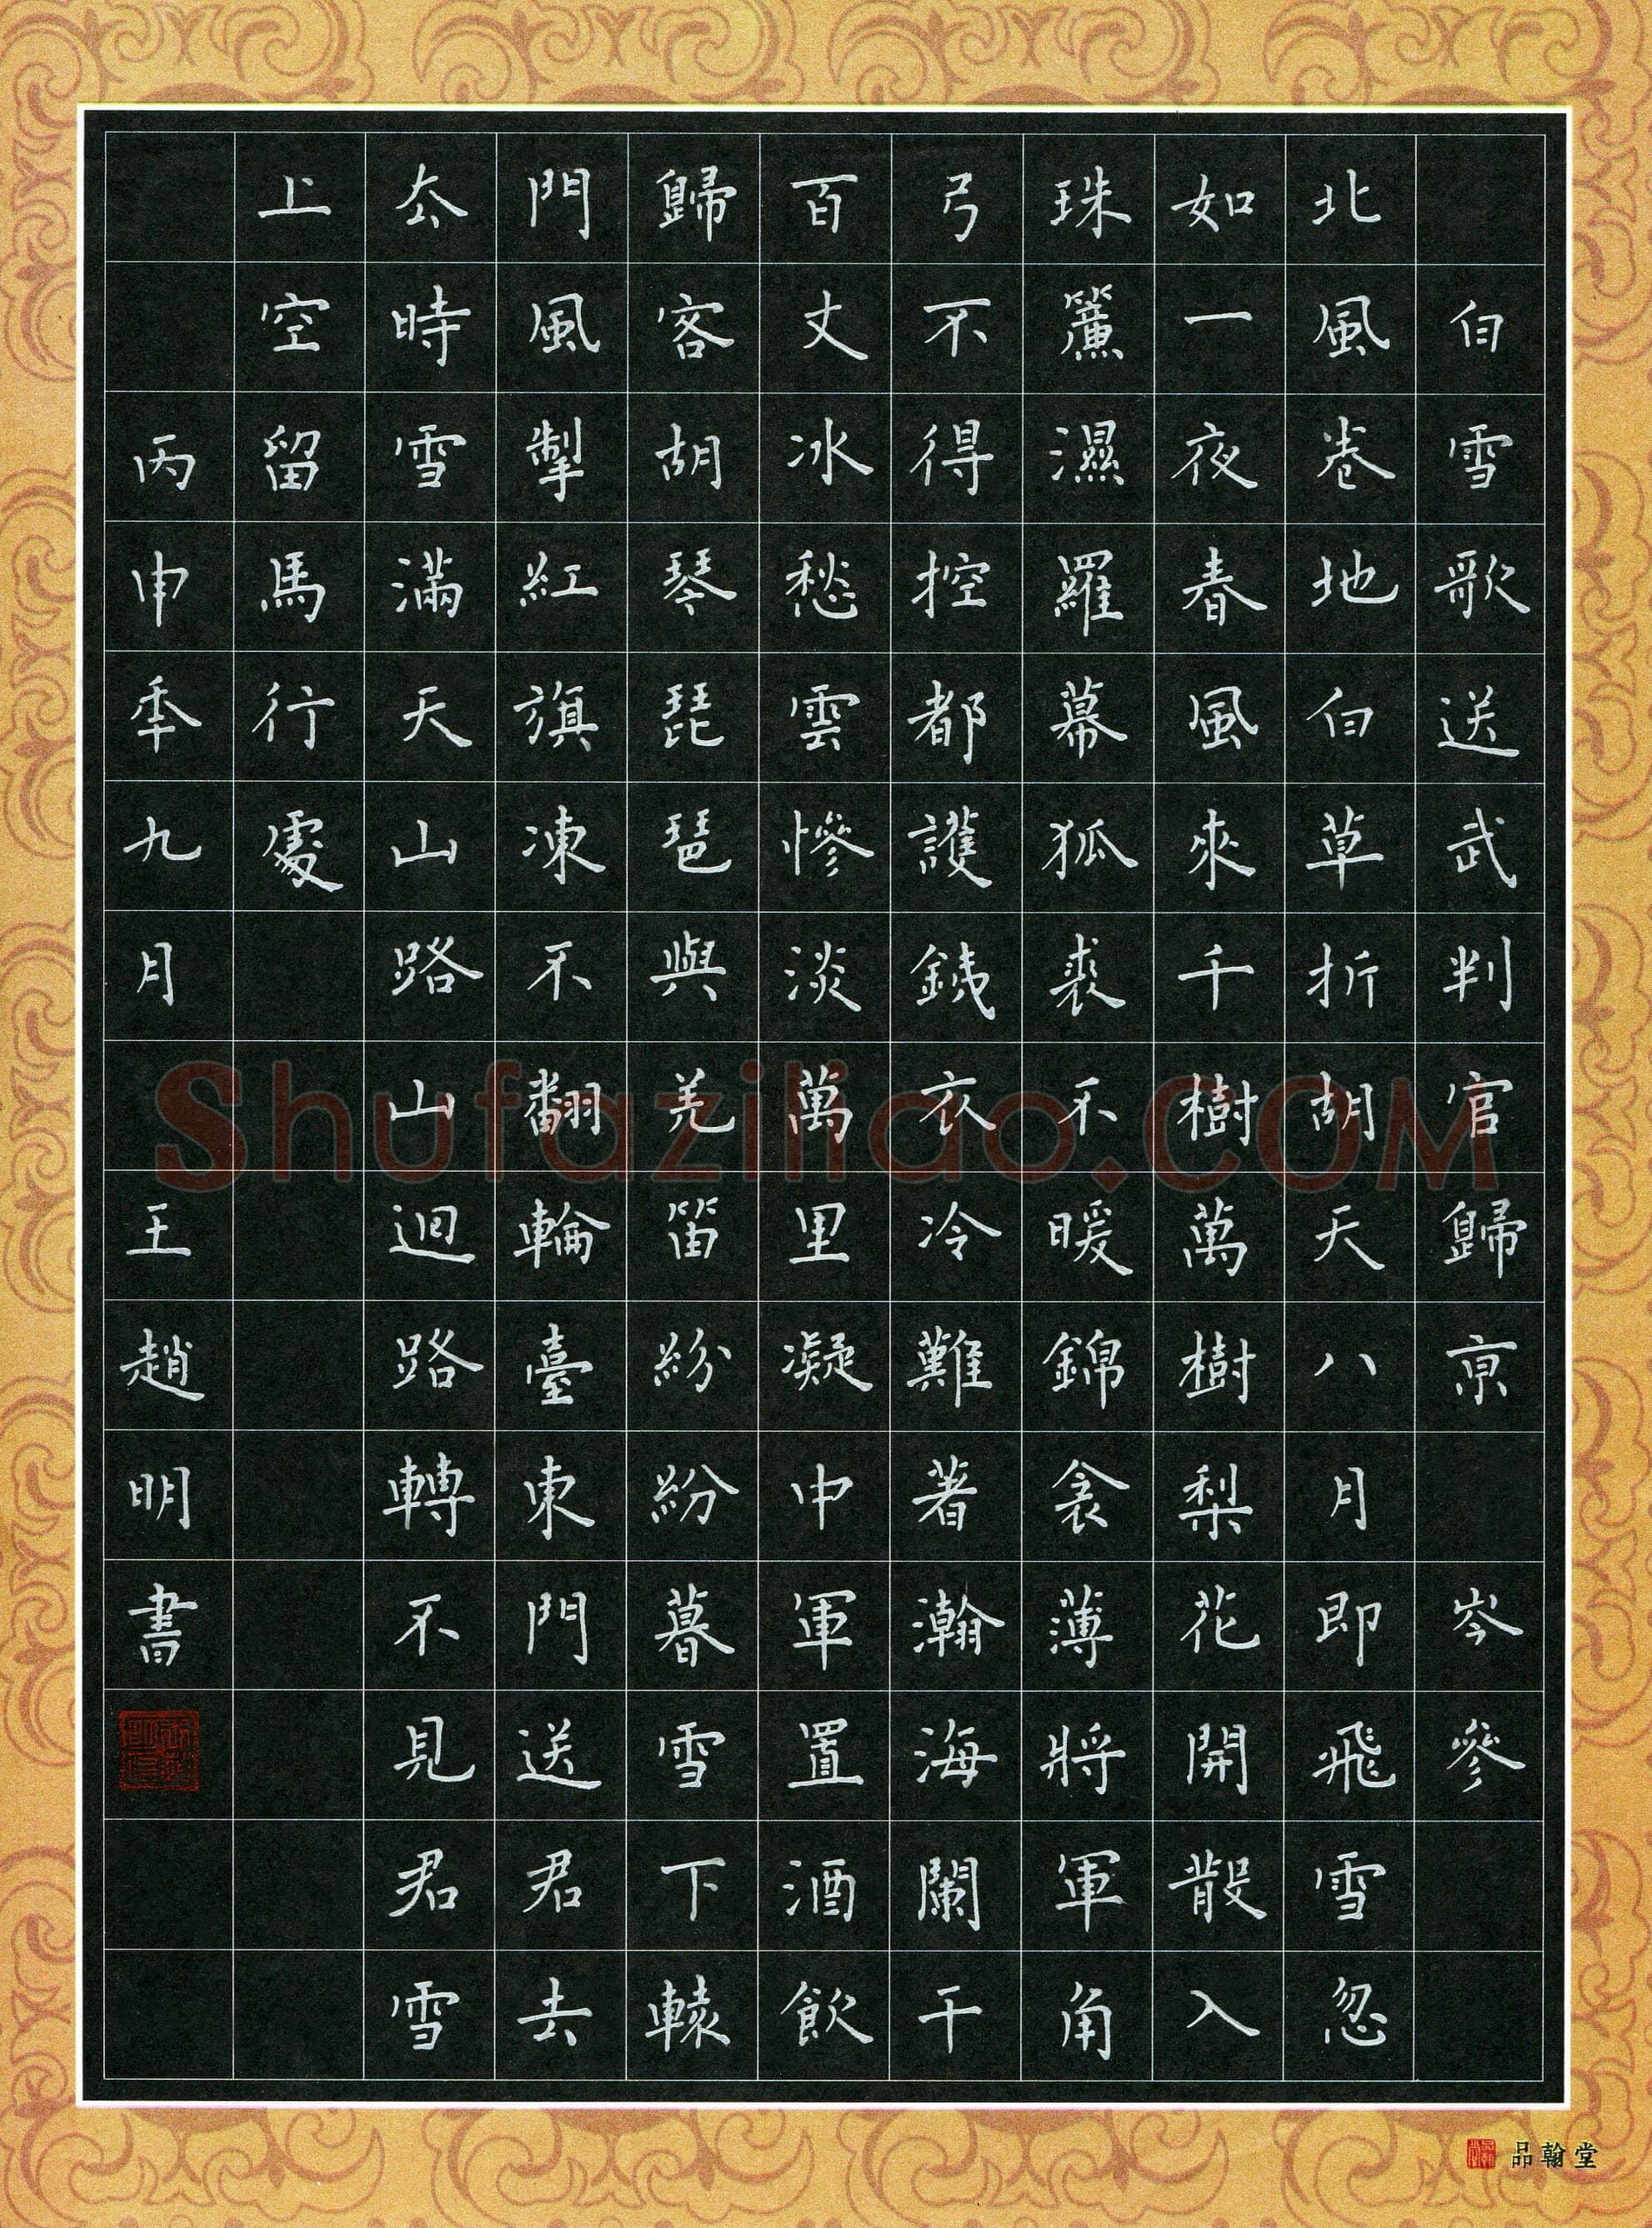 白雪歌送武判官歸京 岑參
北風卷地白草折胡天八月即飛雪忽
如一夜春風來千樹萬樹梨花開散入
珠簾濕羅幕狐裘不暖錦衾薄將軍角
弓不得控都護鐵衣冷難著瀚海闌干
百丈冰愁雲慘淡萬里凝中軍置酒飲
歸客胡琴琵琶與羌笛紛紛暮雪下轅
門風掣紅旗凍不翻輪臺東門送君去
去時雪滿天山路山迴路轉不見君雪
上空留馬行處
丙申年九月 王趙明書
品翰堂
Shufaziliao.COM